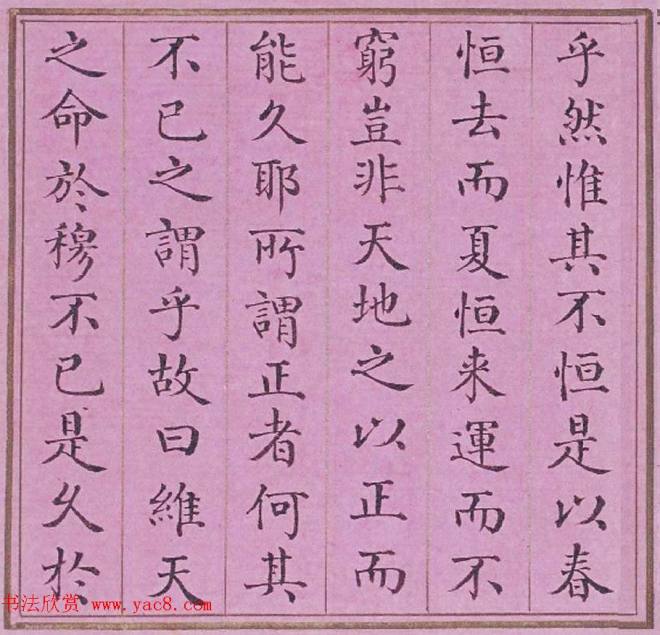 乎然惟其不恒是以春
恒去而夏恒来運而不
窮豈非天地之以正而
能久耶所謂正者何其
不已之謂乎故曰維天
之命於穆不已是久於
书法欣赏 www.yac8.com